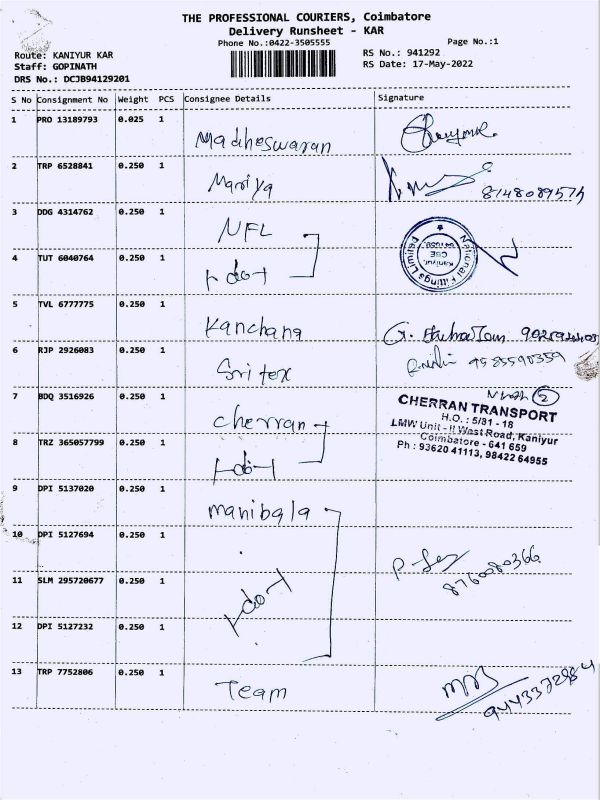 THE PROFESSIONAL COURIERS, Coimbatore
Delivery Runsheet - KAR
Phone No.:0422-3505555
Page No.:1
Route: KANIYUR KAR
Staff: GOPINATH
DRS No.: DCJB94129201
RS No.: 941292
RS Date: 17-May-2022
S No Consignment No Weight PCS Consignee Details Signature
1 PRO 13189793 0.025 1 Madheswaran
2 TRP 6528841 0.250 1 Mariya 8148089574
3 DDG 4314762 0.250 1 NFL
National Fittings Limited
Kaniyur,
CBE
4 TUT 6040764 0.250 1 -do-
5 TVL 6777775 0.250 1 Kanchana
6 RJP 2926083 0.250 1 Sri tex 9585590359
7 BDQ 3516926 0.250 1 cherran
2
CHERRAN TRANSPORT
H.O. : 5/81 - 18
LMW Unit - II West Road, Kaniyur
Coimbatore - 641 659
Ph : 93620 41113, 98422 64955
8 TRZ 365057799 0.250 1 -do-
9 DPI 5137020 0.250 1 manibala
10 DPI 5127694 0.250 1 8760080366
11 SLM 295720677 0.250 1 -do-
12 DPI 5127232 0.250 1
13 TRP 7752806 0.250 1 Team 9443372984